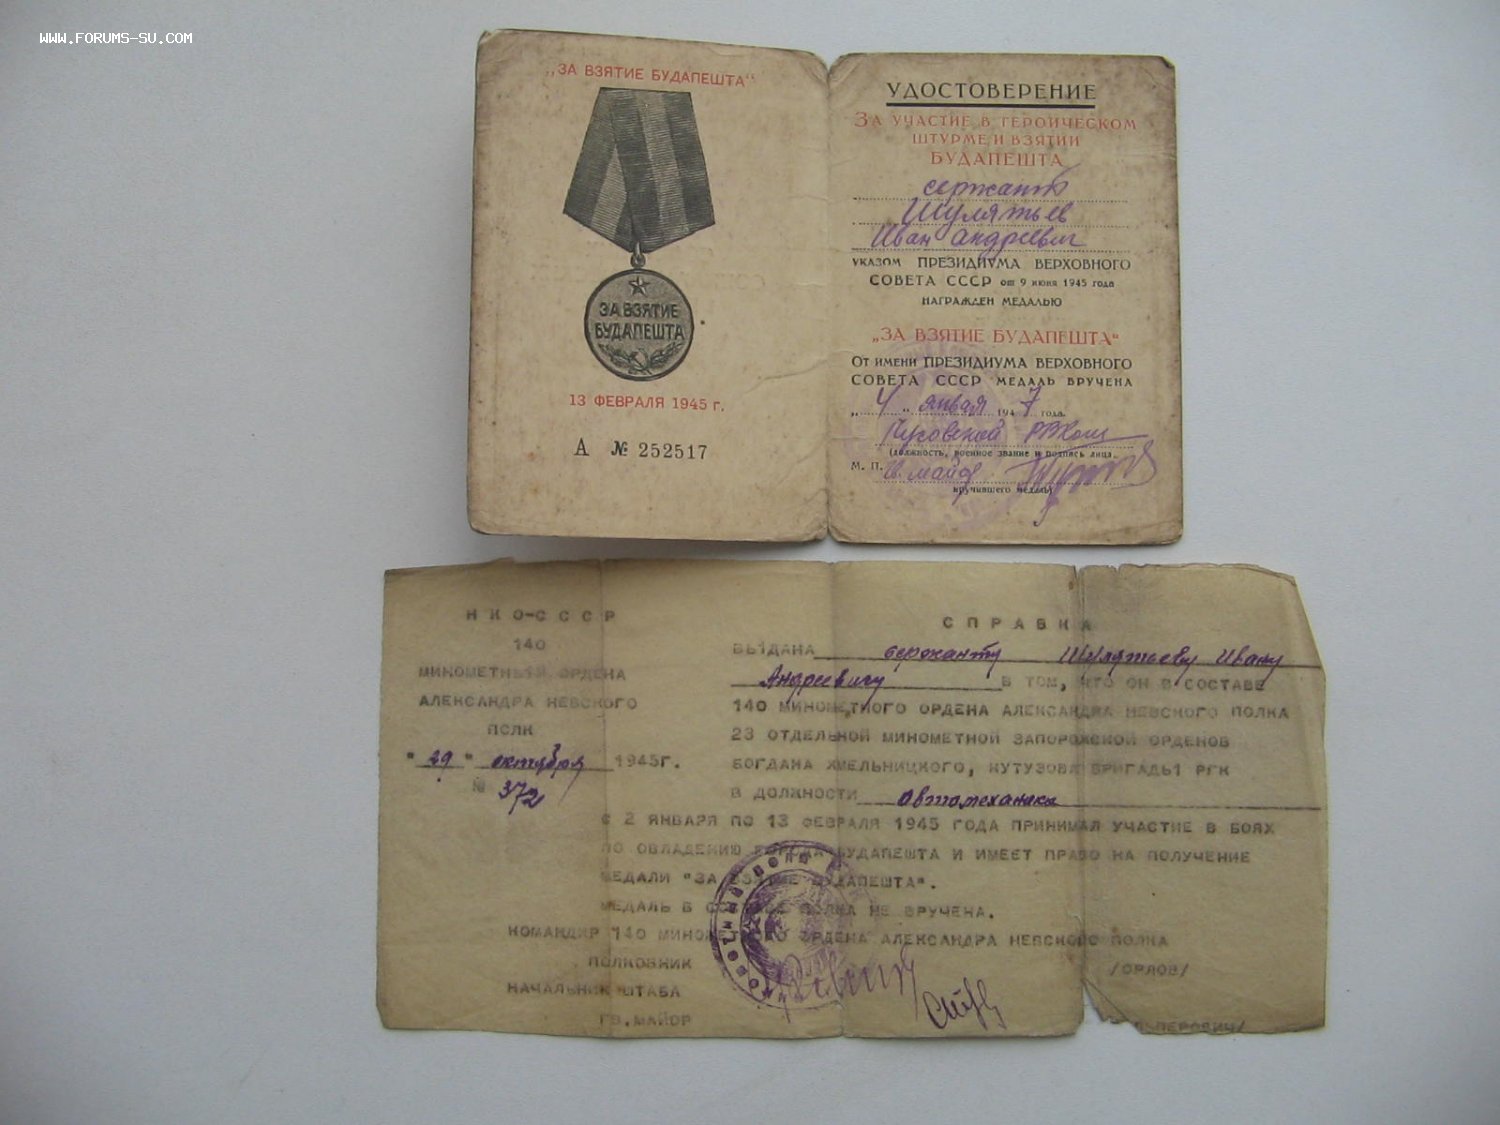 WWW.FORUMS-SU.COM
„ЗА ВЗЯТИЕ БУДАПЕШТА“
ЗА ВЗЯТИЕ
БУДАПЕШТА
13 ФЕВРАЛЯ 1945 г.
А № 252517
УДОСТОВЕРЕНИЕ
ЗА УЧАСТИЕ В ГЕРОИЧЕСКОМ
ШТУРМЕ И ВЗЯТИИ
БУДАПЕШТА
сержант
Шулятьев
Иван Андреевич
УКАЗОМ ПРЕЗИДИУМА ВЕРХОВНОГО
СОВЕТА СССР от 9 июня 1945 года
НАГРАЖДЕН МЕДАЛЬЮ
„ЗА ВЗЯТИЕ БУДАПЕШТА“
ОТ ИМЕНИ ПРЕЗИДИУМА ВЕРХОВНОГО
СОВЕТА СССР МЕДАЛЬ ВРУЧЕНА
„4“ января 1947 года.
(должность, военное звание и подпись лица,
М. П.
вручившего медаль)
НКО-СССР
140
МИНОМЕТНЫЙ ОРДЕНА
АЛЕКСАНДРА НЕВСКОГО
ПОЛК
"29" октября 1945г.
№ 372
СПРАВКА
ВЫДАНА сержанту Шулятьеву Ивану
Андреевичу В ТОМ, ЧТО ОН В СОСТАВЕ
140 МИНОМЕТНОГО ОРДЕНА АЛЕКСАНДРА НЕВСКОГО ПОЛКА
23 ОТДЕЛЬНОЙ МИНОМЕТНОЙ ЗАПОРОЖСКОЙ ОРДЕНОВ
БОГДАНА ХМЕЛЬНИЦКОГО, КУТУЗОВА БРИГАДЫ РГК
В ДОЛЖНОСТИ автомеханика
С 2 ЯНВАРЯ ПО 13 ФЕВРАЛЯ 1945 ГОДА ПРИНИМАЛ УЧАСТИЕ В БОЯХ
ПО ОВЛАДЕНИЮ ГОРОДА БУДАПЕШТА И ИМЕЕТ ПРАВО НА ПОЛУЧЕНИЕ
МЕДАЛИ "ЗА ВЗЯТИЕ БУДАПЕШТА".
МЕДАЛЬ В СОСТАВЕ ПОЛКА НЕ ВРУЧЕНА.
КОМАНДИР 140 МИНОМЕТНОГО ОРДЕНА АЛЕКСАНДРА НЕВСКОГО ПОЛКА
ПОЛКОВНИК /ОРЛОВ/
НАЧАЛЬНИК ШТАБА
ГВ.МАЙОР